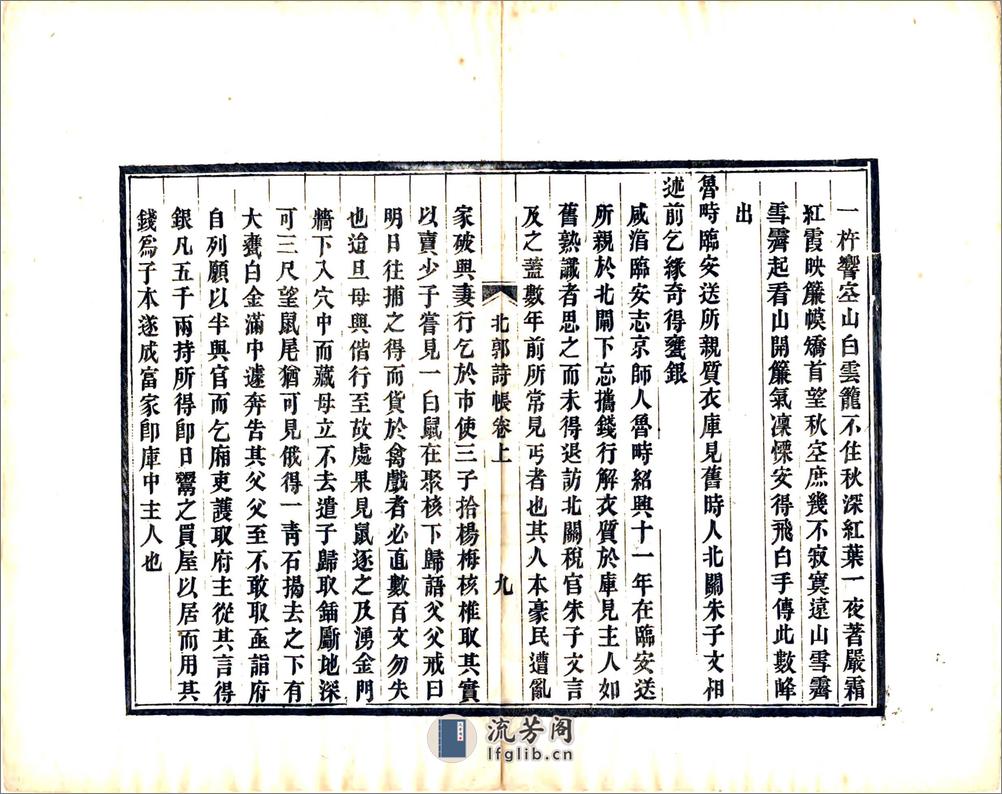 一杵響空山白雲籠不住秋深紅葉一夜著嚴霜
紅霞映簾幙矯首望秋空庶幾不寂寞遠山雪霽
雪霽起看山開簾氣凜慄安得飛白手傳此數峰
出
魯時臨安送所親質衣庫見舊時人北關朱子文相
述前乞緣奇得甕銀
咸淯臨安志京師人魯時紹興十一年在臨安送
所親於北閘下忘攜錢行解衣質於庫見主人如
舊熟識者思之而未得退訪北關稅官朱子文言
及之蓋數年前所常見丐者也其人本豪民遭亂
北郭詩帳卷上
九
家破與妻行乞於市使三子拾楊梅核椎取其實
以賣少子嘗見一白鼠在聚核下歸語父父戒曰
明日往捕之得而貨於禽戲者必直數百文勿失
也迨旦母與偕行至故處果見鼠逐之及湧金門
牆下入穴中而藏母立不去遣子歸取鍤斸地深
可三尺望鼠尾猶可見俄得一青石揭去之下有
大甕白金滿中遽奔告其父父至不敢取亟詣府
自列願以半與官而乞廂吏護取府主從其言得
銀凡五千兩持所得卽日鬻之買屋以居而用其
錢爲子本遂成富家卽庫中主人也
流芳阁
lfglib.cn